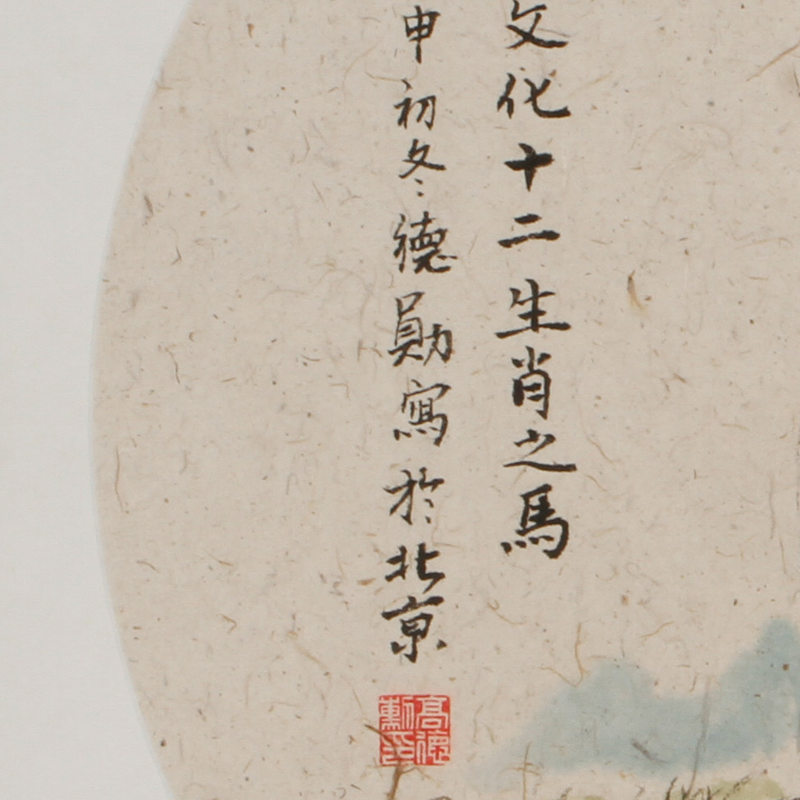 文化十二生肖之馬
申初冬德勛寫於北京
髙德
勳印